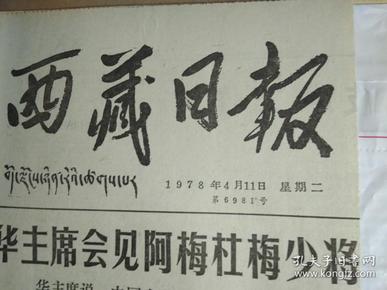 西藏日报
1978年4月11日 星期二
第6981号
华主席会见阿梅杜梅少将
华主席说
孔夫子旧书网